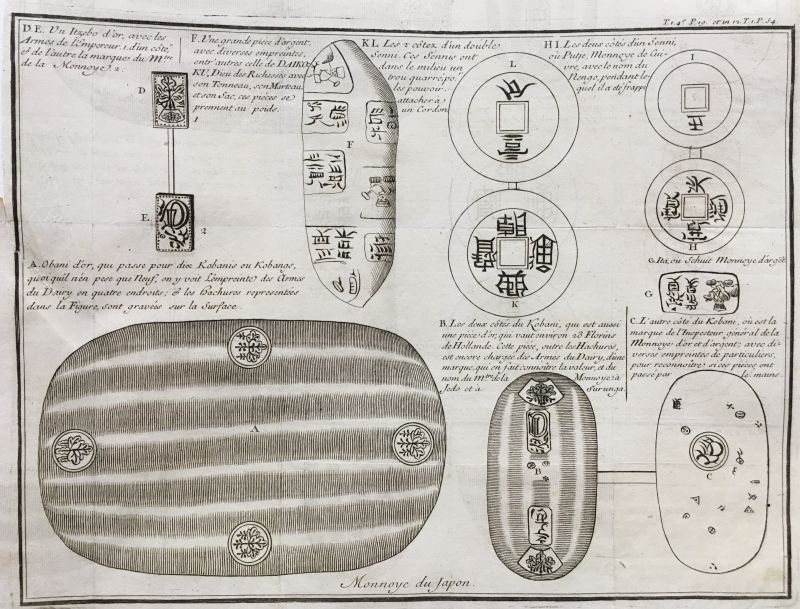 T. 1. 4.° P. 19. et in 12. T. 1. P. 54.
D. E. Un Itzebo d'or, avec les
Armes de l'Empereur 1. d'un coté,
& de l'autre la marque du M.tre
de la Monnoye 2.
D
1
E
2
F. Une grande piéce d'argent,
avec diverses empreintes,
entr'autres celle de DAIKO-
KU, Dieu des Richesses avec
son Tonneau, son Marteau,
et son Sac, ces piéces se
prennent au poids.
F
K L. Les 2 côtez d'un double
Senni. Ces Sennis ont
dans le milieu un
trou quarré po.r
les pouvoir
attacher à
un Cordon.
L
K
H I. Les deux côtés d'un Senni,
ou Putje, Monnoye de Cui-
vre, avec le nom du
Nengo, pendant le-
quel il a été frappé
I
H
G. Ita, ou Schuit Monnoye d'argẽt
G
A. Obani d'or, qui passe pour dix Kobanis ou Kobangs,
quoi qu'il n'én pese que Neuf, on y voit l'empreinte des Armes
du Dairy en quatre endroits; & les hachures representées
dans la Figure, sont gravées sur la Surface.
A
B. Les deux côtes du Kobani, qui est aussi
une piéce d'or, qui vaut environ 28 Florins
de Hollande. Cette piéce, outre les Hachures,
est encore chargée des Armes du Dairy, d'une
marque, qui en fait connoitre la valeur, et du
nom du M.tre de la Monnoye à
Jedo et à Surunga.
B
C. L'autre côté du Kobani, où est la
marque de l'Inspecteur general de la
Monnoye d'or et d'argent; avec di-
verses empreintes de particuliers,
pour reconnoître si ces piéces ont
passé par le mains.
C
Monnoye du Japon.